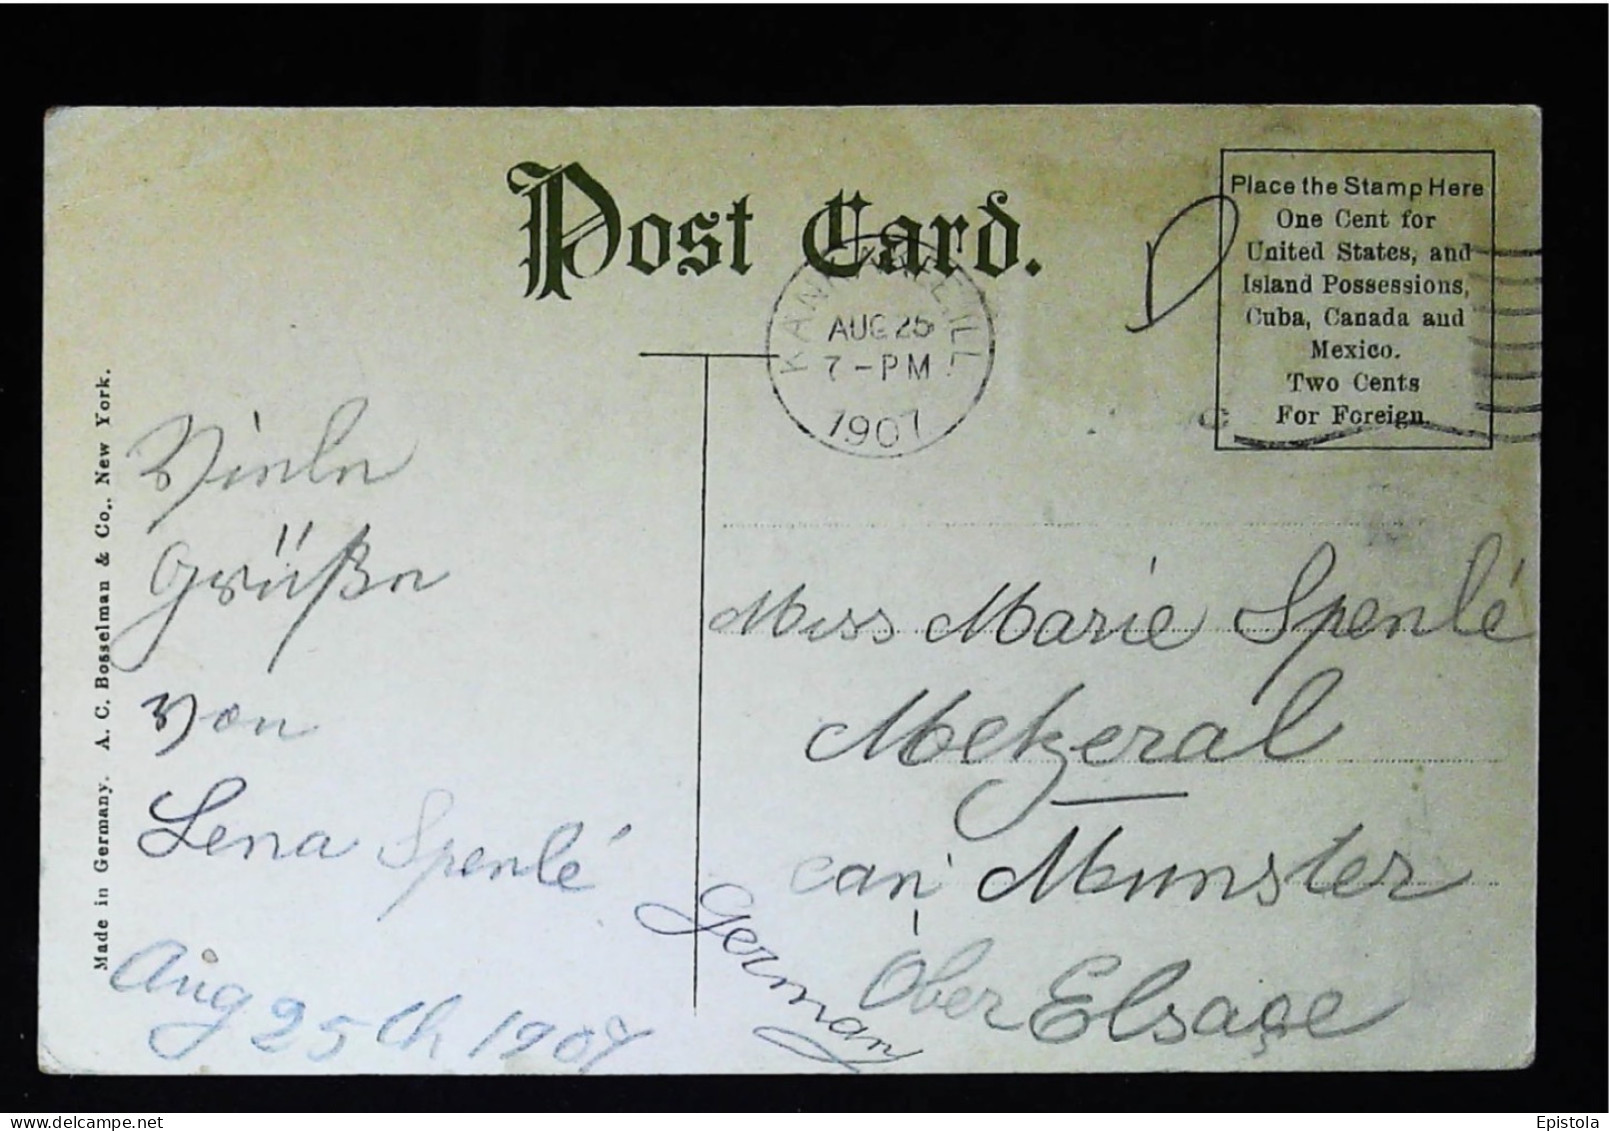 Post Card.
Place the Stamp Here
One Cent for
United States, and
Island Possessions,
Cuba, Canada and
Mexico.
Two Cents
For Foreign.
AUG 25
7-PM
1907
Made in Germany. A. C. Bosselman & Co., New York.
Viele
Grüße
von
Lena Spenlé
Aug 25th 1907
Miss Marie Spenlé
Metzeral
Munster
Ober Elsaçe
German
Epistola